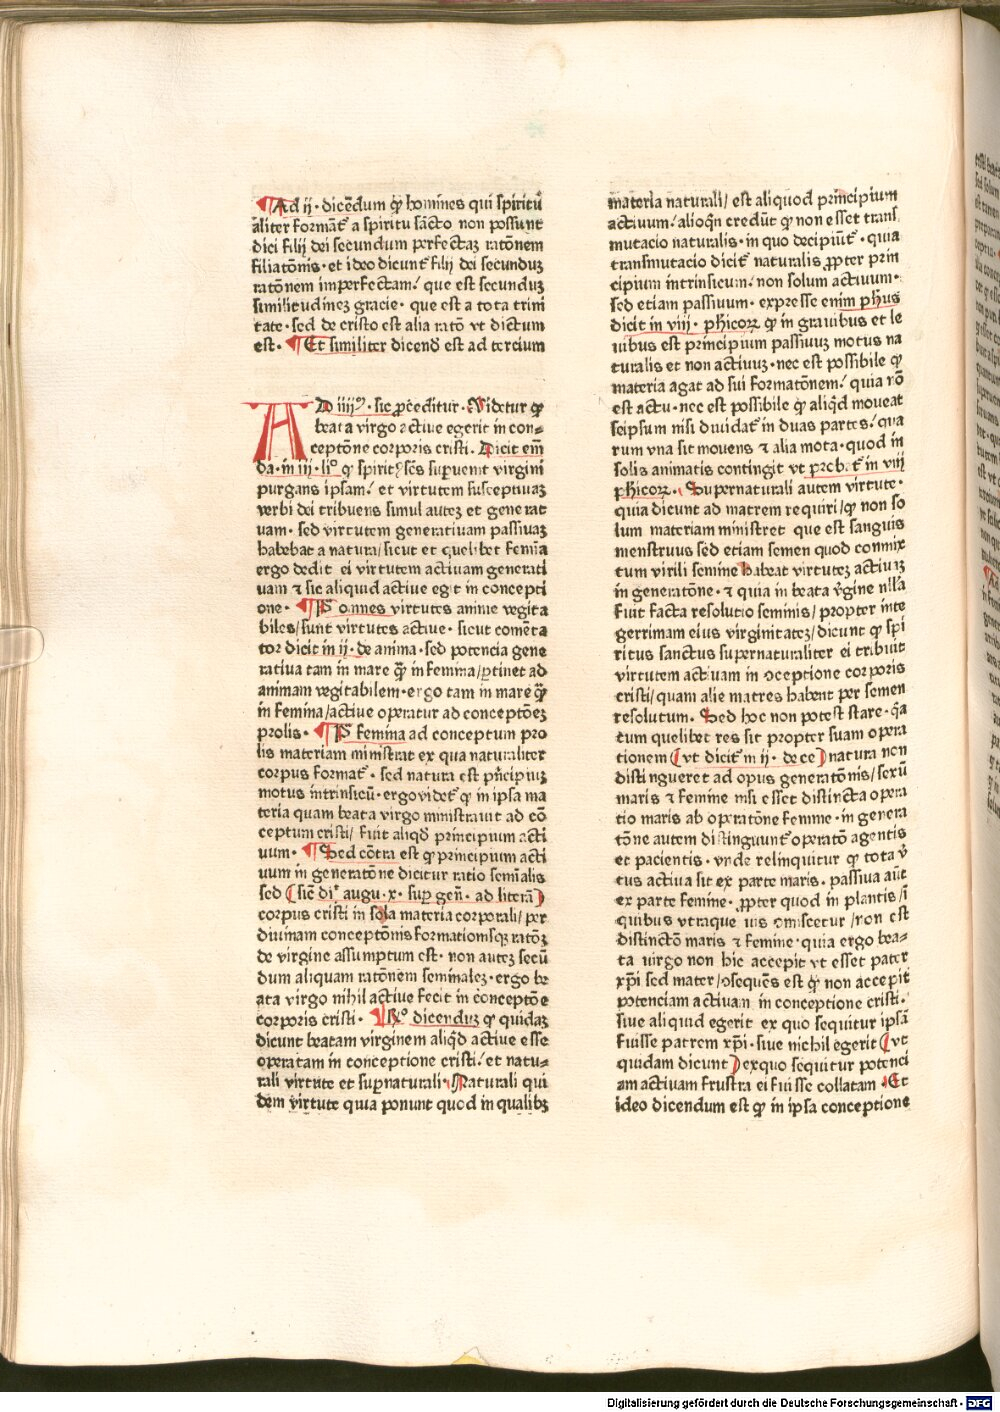 ¶Ad ij · dicēdum ꝙ homines qui spiritū
aliter formāt᷑ a spiritu sācto non possunt
dici filij dei secundum perfectaʒ ratōnem
filiatōnis · et ideo dicunt᷑ filij dei secunduʒ
ratōnem imperfectam / que est secunduʒ
similitudineʒ gracie · que est a tota trini
tate · sed de cristo est alia ratō vt dictum
est · ¶Et similiter dicend̄ est ad tercium
AD iiijᵐ · sic ꝓceditur · Videtur ꝙ
beata virgo actiue egerit in con-
ceptōne corporis cristi · Dicit enī
da · in iij · liº ꝙ spiritꝰ scs̄ supuenit virgini
purgans ipsam / et virtutem susceptiuaʒ
verbi dei tribuens simul auteʒ et generat
uam · sed virtutem generatiuam passiuaʒ
habebat a natura / sicut et quelibet femīa
ergo dedit ei virtutem actiuam generati
uam ⁊ sic aliquid actiue egit in concepti
one · ¶Pͣ omnes virtutes anime vegita
biles / sunt virtutes actiue · sicut comēta
tor dicit in ij · de anima · sed potencia gene
ratiua tam in mare ꝙ̄ in femina / ꝑtinet ad
animam vegitabilem · ergo tam in mare ꝙ̄
in femina / actiue operatur ad conceptōeʒ
prolis · ¶Pͣ femina ad conceptum pro
lis materiam ministrat ex qua naturaliter
corpus format᷑ · sed natura est pͥncipiuʒ
motus intrinsicū · ergo videt᷑ ꝙ in ipsa ma
teria quam beata virgo ministrauit ad cō
ceptum cristi / fuit aliqd̄ principium acti
uum · ¶Sed cōtra est ꝙ principium acti
uum in generatōne dicitur ratio semīalis
sed (sic̄ dī augu · x · sup̄ gen̄ · ad literā)
corpus cristi in sola materia corporali / per
diuinam conceptōnis formationisqʒ ratōʒ
de virgine assumptum est · non auteʒ secū
dum aliquam ratōnem seminaleʒ · ergo be
ata virgo nihil actiue fecit in conceptōe
corporis cristi · ¶Rº dicenduʒ ꝙ quidaʒ
dicunt beatam virginem aliqd̄ actiue esse
operatam in conceptione cristi / et natu-
rali virtute et sup̄naturali · Naturali qui
dem virtute quia ponunt quod in qualibʒ
materia naturali / est aliquod principium
actiuum / alioqn̄ credūt ꝙ non esset trans
mutacio naturalis · in quo decipiūt᷑ · quia
transmutacio dicit᷑ naturalis ꝓpter prin
cipium intrinsicum / non solum actiuum ·
sed etiam passiuum · expresse enim ph̄us
dicit in viij · phicoꝝ ꝙ in grauibus et le
uibus est principium passiuuʒ motus na
turalis et non actiuuʒ · nec est possibile ꝙ
materia agat ad sui formatōnem / quia nō
est actu · nec est possibile ꝙ aliqd̄ moueat
seipsum nisi diuidat᷑ in duas partes / qua
rum vna sit mouens ⁊ alia mota · quod in
solis animatis contingit vt probat᷑ in viij
phicoꝝ · Supernaturali autem virtute ·
quia dicunt ad matrem requiri / ꝙ non so
lum materiam ministret que est sanguis
menstruus sed etiam semen quod conmix
tum virili semine habeat virtuteʒ actiuaʒ
in generatōne · ⁊ quia in beata v̄gine nll̄a
fuit facta resolutio seminis / propter inte
gerrimam eius virginitateʒ / dicunt ꝙ spi
ritus sanctus supernaturaliter ei tribuit
virtutem actiuam in ꝯceptione corporis
cristi / quam alie matres habent per semen
resolutum · Sed hoc non potest stare · qͣa
tum quelibet res sit propter suam opera
tionem (vt dicit᷑ in ij · de ce) natura non
distingueret ad opus generatōnis / sexū
maris ⁊ femine nisi esset distincta opera
tio maris ab operatōne femine · in genera
tōne autem distinguunt᷑ operatō agentis
et pacientis · vnde relinquitur ꝙ tota v̄
tus actiua sit ex parte maris · passiua aūt
ex parte femine · ꝓpter quod in plantis / ī
quibus vtraque uis ꝯmiscetur / non est
distinctō maris ⁊ femine · quia ergo bea-
ta uirgo non hic accepit vt esset pater
xp̄i sed mater / ꝯsequēs est ꝙ non accepit
potenciam actiuam in conceptione cristi ·
siue aliquid egerit ex quo sequitur ipsā
fuisse patrem xp̄i · siue nichil egerit (vt
quidam dicunt) exquo sequitur potenci
am actiuam frustra ei fuisse collatam · Et
ideo dicendum est ꝙ in ipsa conceptione
Digitalisierung gefördert durch die Deutsche Forschungsgemeinschaft - DFG